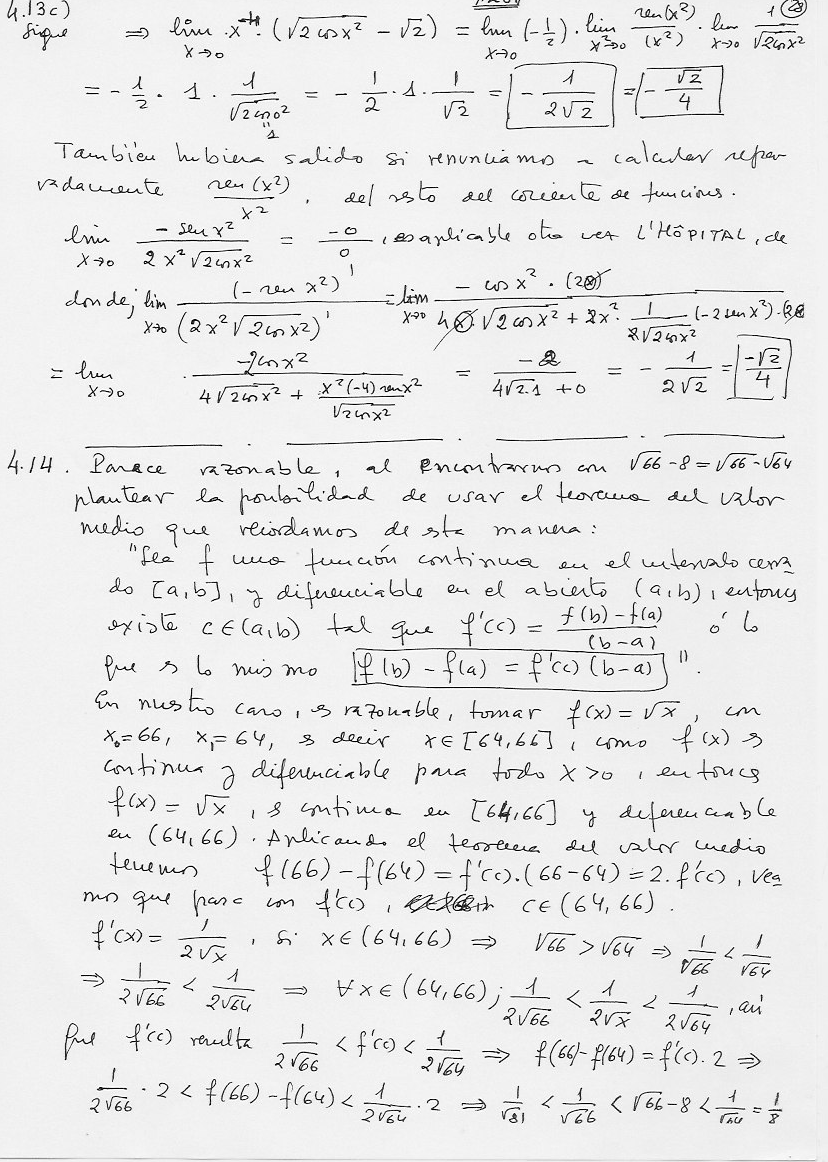 4.13c) ⇒ lim x→0 x⁻⁴ · (√(2cos x²) − √2) = lim x→0 (−1/2) · lim x²→0 sen(x²)/(x²) · lim x→0 1/√(2cos x²)
Sigue
= − 1/2 · 1 · 1/√(2cos 0²) = − 1/2 · 1 · 1/√2 = − 1/(2√2) = − √2/4
"1
También hubiera salido si renunciamos a calcular sepa-
radamente sen(x²)/x², del resto del cociente de funciones.
lim x→0 − sen x²/(2x²√(2cos x²)) = −0/0, es aplicable otra vez L'HÔPITAL, de
donde; lim x→0 (− sen x²)'/(2x²√(2cos x²))' = lim x→0 − cos x² · (2x)/(4x · √(2cos x²) + 2x² · 1/(2√(2cos x²)) (−2 sen x²) · 2x)
= lim x→0 −2cos x²/(4√(2cos x²) + x²(−4) sen x²/√(2cos x²)) = −2/(4√2·1 + 0) = − 1/(2√2) = −√2/4
4.14. Parece razonable, al encontrarnos con √66 − 8 = √66 − √64
plantear la posibilidad de usar el teorema del valor
medio que recordamos de esta manera:
"Sea f una función continua en el intervalo cerra-
do [a,b], y diferenciable en el abierto (a,b), entonces
existe c∈(a,b) tal que f'(c) = (f(b) − f(a))/(b−a) ó lo
que es lo mismo f(b) − f(a) = f'(c)(b−a)".
En nuestro caso, es razonable, tomar f(x) = √x, con
x₀=66, x₁=64, es decir x∈[64,66], como f(x) es
continua y diferenciable para todo x>0, entonces
f(x) = √x, es continua en [64,66] y diferenciable
en (64,66). Aplicando el teorema del valor medio
tenemos f(66) − f(64) = f'(c).(66−64) = 2.f'(c), vea
mos que pasa con f'(c), c∈(64,66).
f'(x) = 1/(2√x), si x∈(64,66) ⇒ √66 > √64 ⇒ 1/√66 < 1/√64
⇒ 1/(2√66) < 1/(2√64) ⇒ ∀x∈(64,66); 1/(2√66) < 1/(2√x) < 1/(2√64), así
que f'(c) resulta 1/(2√66) < f'(c) < 1/(2√64) ⇒ f(66) − f(64) = f'(c).2 ⇒
1/(2√66) · 2 < f(66) − f(64) < 1/(2√64) · 2 ⇒ 1/√81 < 1/√66 < √66 − 8 < 1/√64 = 1/8